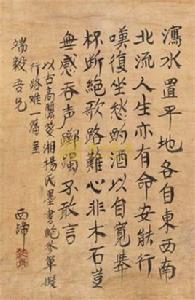 瀉水置平地各自東西南
北流人生亦有命安能行
嘆復坐愁酌酒以自寬舉
杯斷絕歌路難心非木石豈
無感吞声躑躅不敢言
以古高麗箋湘楊氏墨書鮑參軍
行路難一篇呈
端毅吾兄
西諦